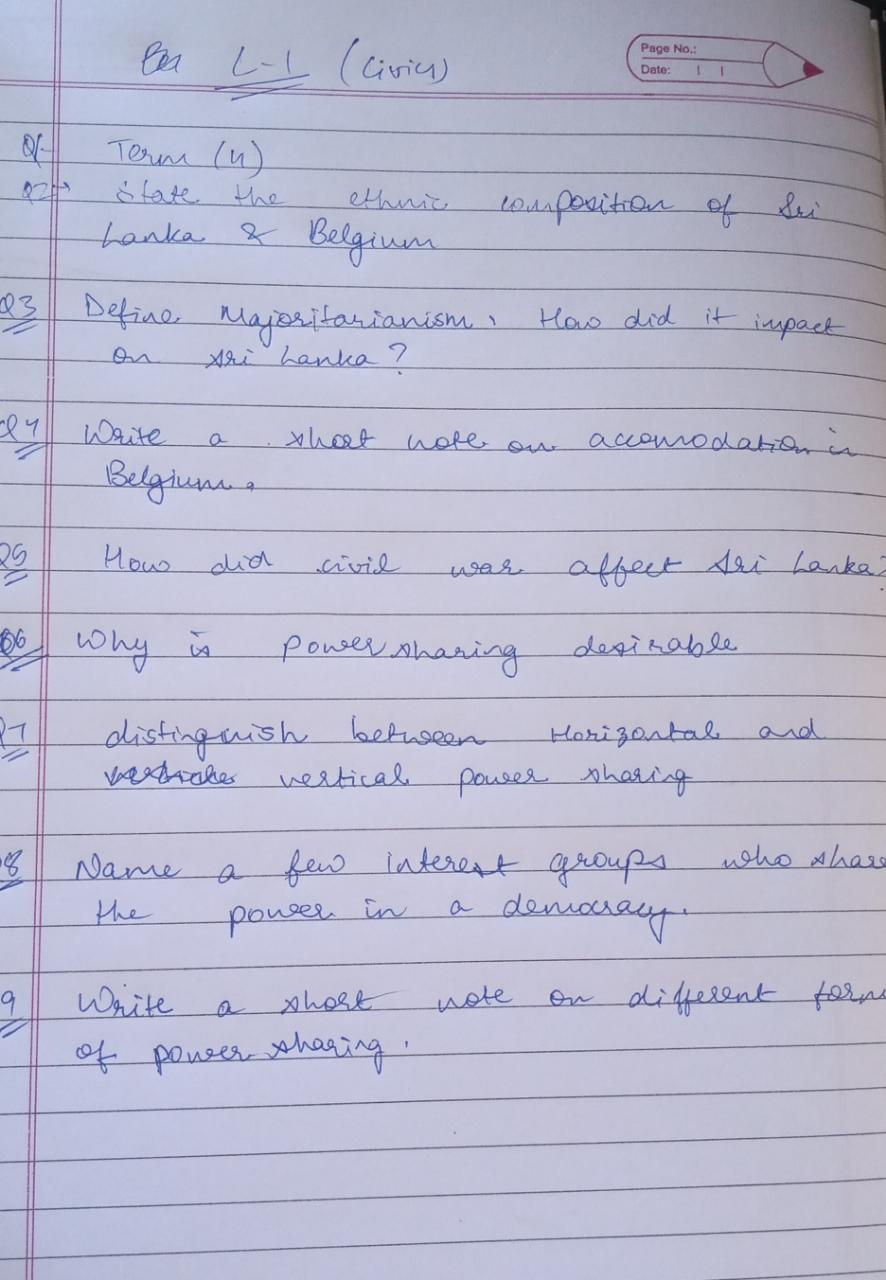 L-1 (Civics)
Page No.:
Date:
Q1 Term (4)
Q2 State the ethnic composition of Sri
Lanka & Belgium
Q3 Define Majoritarianism. How did it impact
on Sri Lanka?
Q4 Write a short note on accomodation in
Belgium.
Q5 How did civil war affect Sri Lanka?
Q6 Why is power sharing desirable
Q7 distinguish between Horizontal and
vertical power sharing
Q8 Name a few interest groups who share
the power in a democracy.
9 Write a short note on different forms
of power sharing.